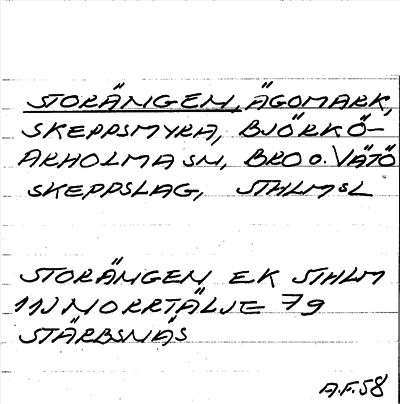 STORÄNGEN, ÄGOMARK,
SKEPPSMYRA, BJÖRKÖ-
ARHOLMA SN, BRO o. VÄTÖ
SKEPPSLAG, STHLMSL
STORÄNGEN EK STHLM
11J NORRTÄLJE 79
STÄRBSNÄS
A.F.58